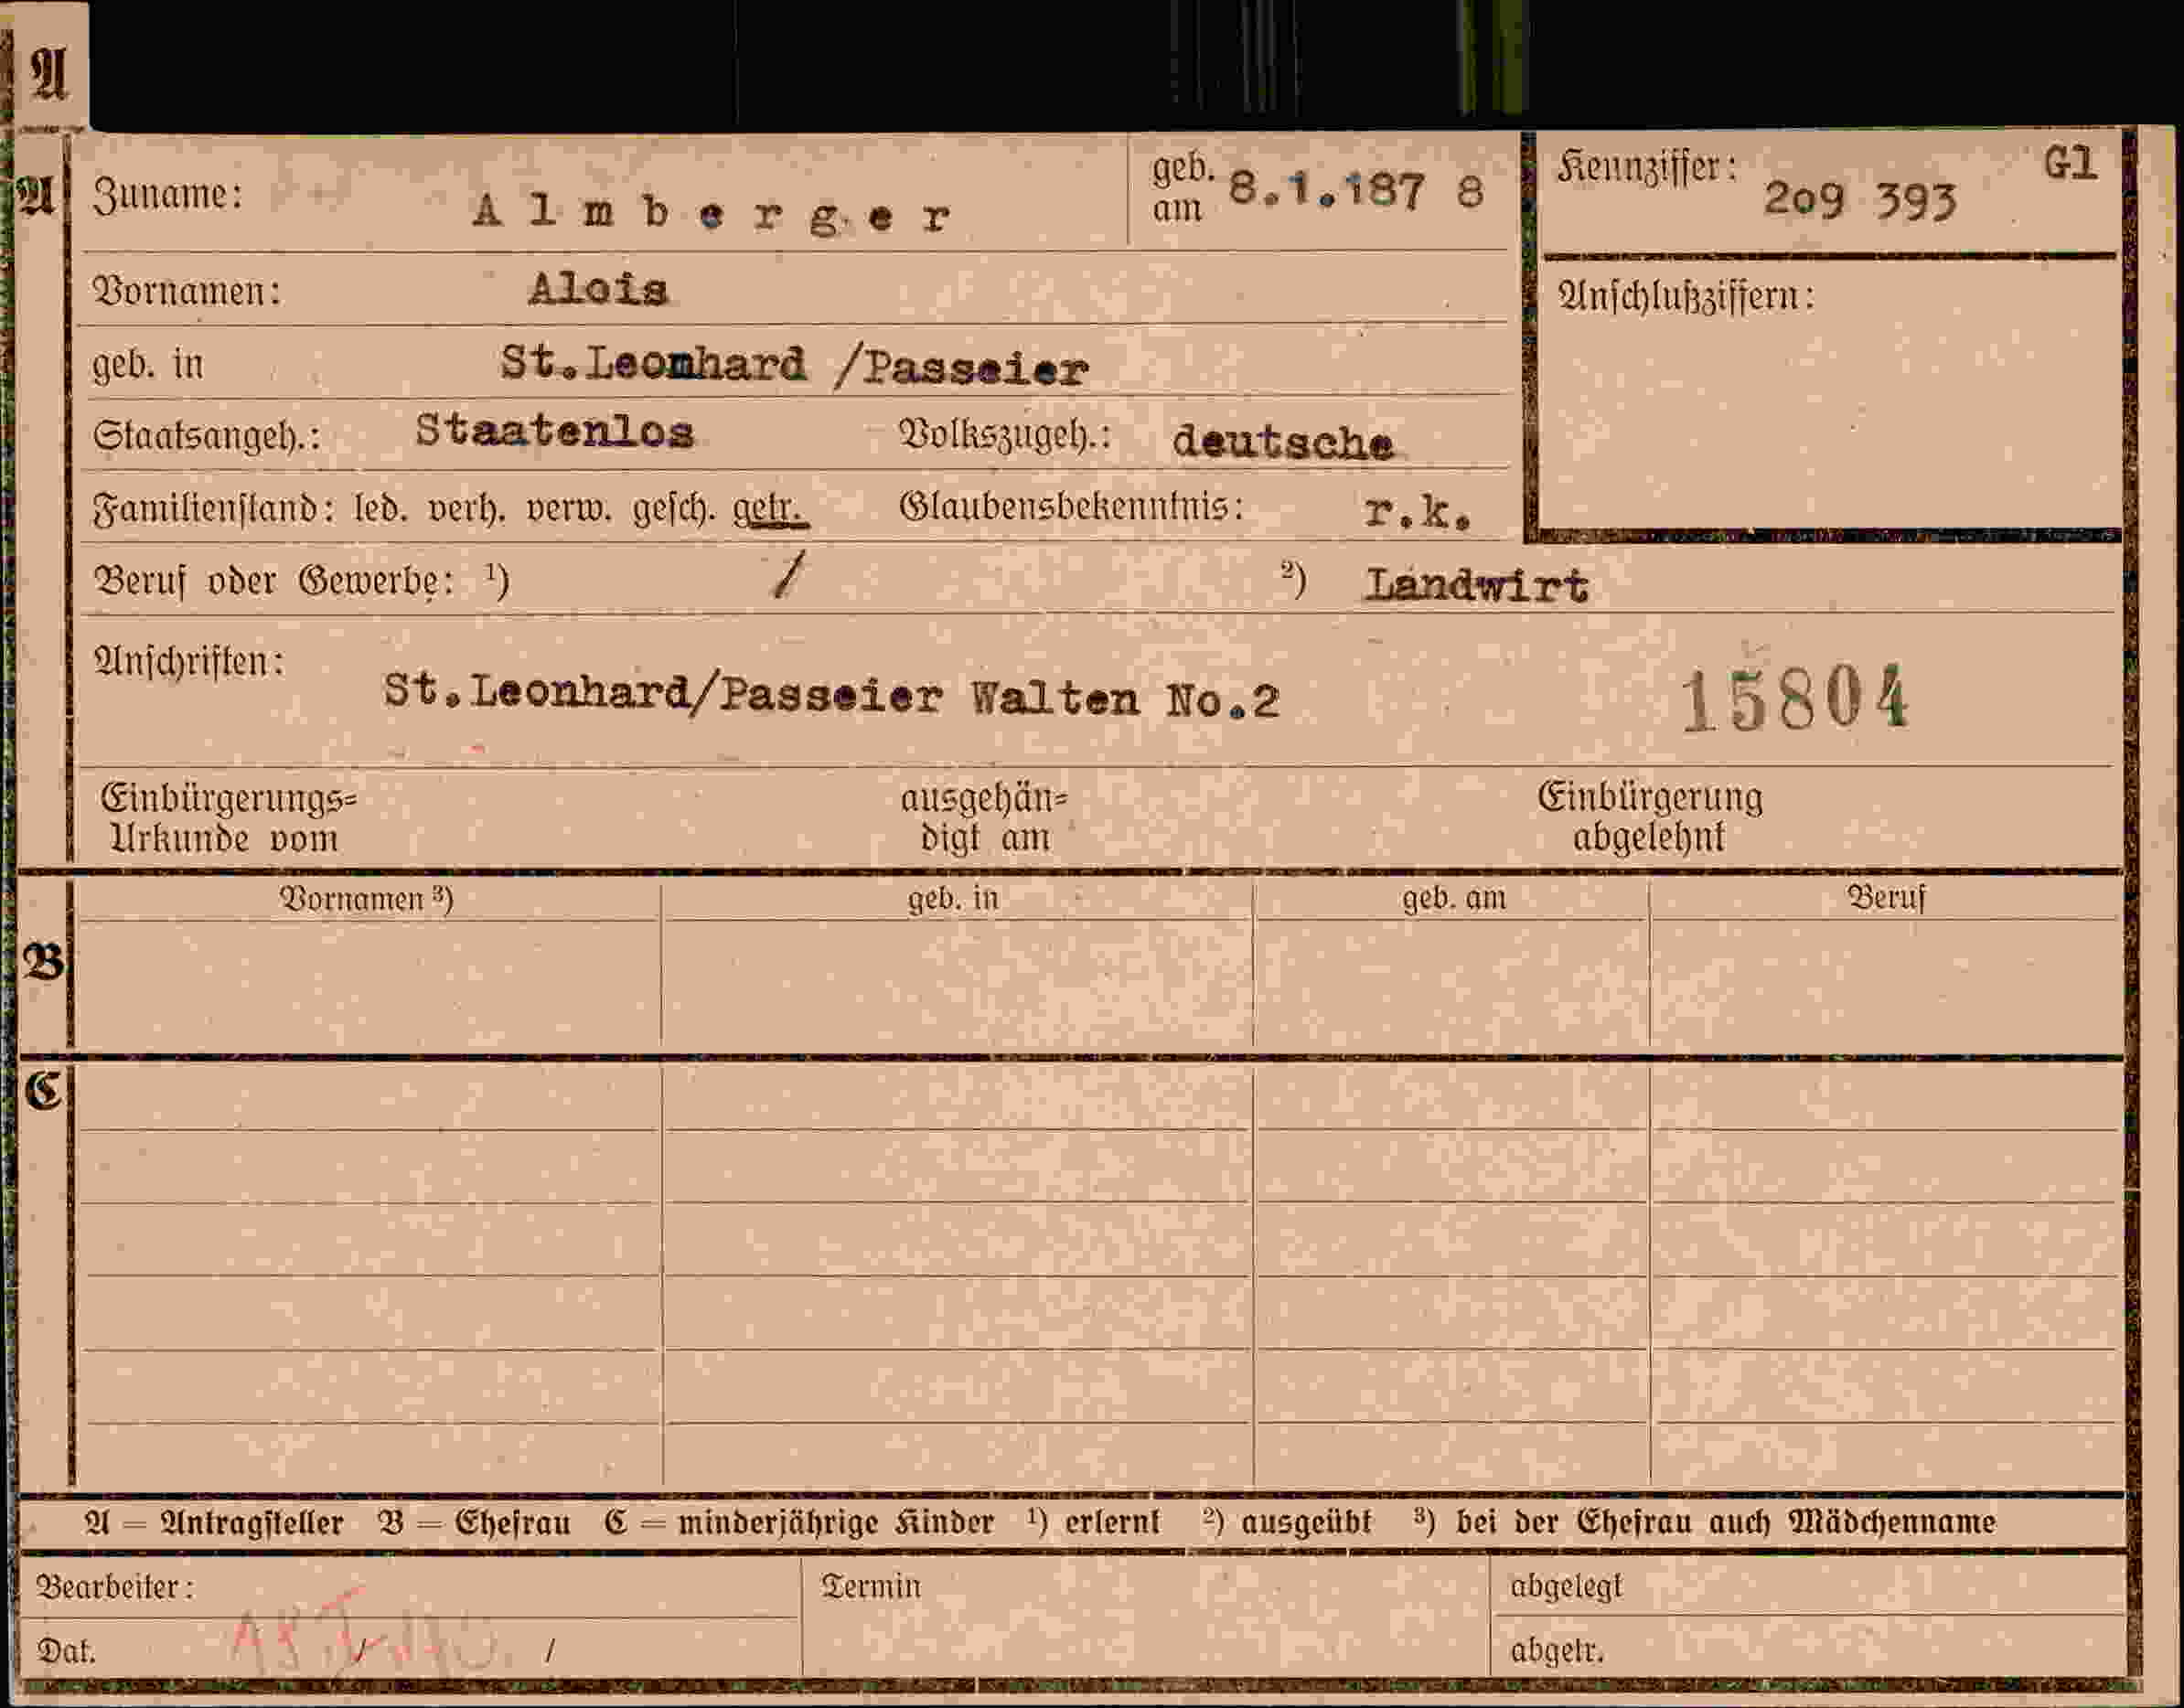 A
A
Zuname: Almberger geb. am 8.1.187 8 Kennziffer: 209 393 Gl
Vornamen: Alois Anschlußziffern:
geb. in St.Leonhard /Passeier
Staatsangeh.: Staatenlos Volkszugeh.: deutsche
Familienstand: led. verh. verw. gesch. getr. Glaubensbekenntnis: r.k.
Beruf oder Gewerbe: ¹) / ²) Landwirt
Anschriften: St.Leonhard/Passeier Walten No.2 15804
Einbürgerungs= ausgehän= Einbürgerung
Urkunde vom digt am abgelehnt
Vornamen ³) geb. in geb. am Beruf
B
C
A = Antragsteller B = Ehefrau C = minderjährige Kinder ¹) erlernt ²) ausgeübt ³) bei der Ehefrau auch Mädchenname
Bearbeiter: Termin abgelegt
Dat. / / abgetr.